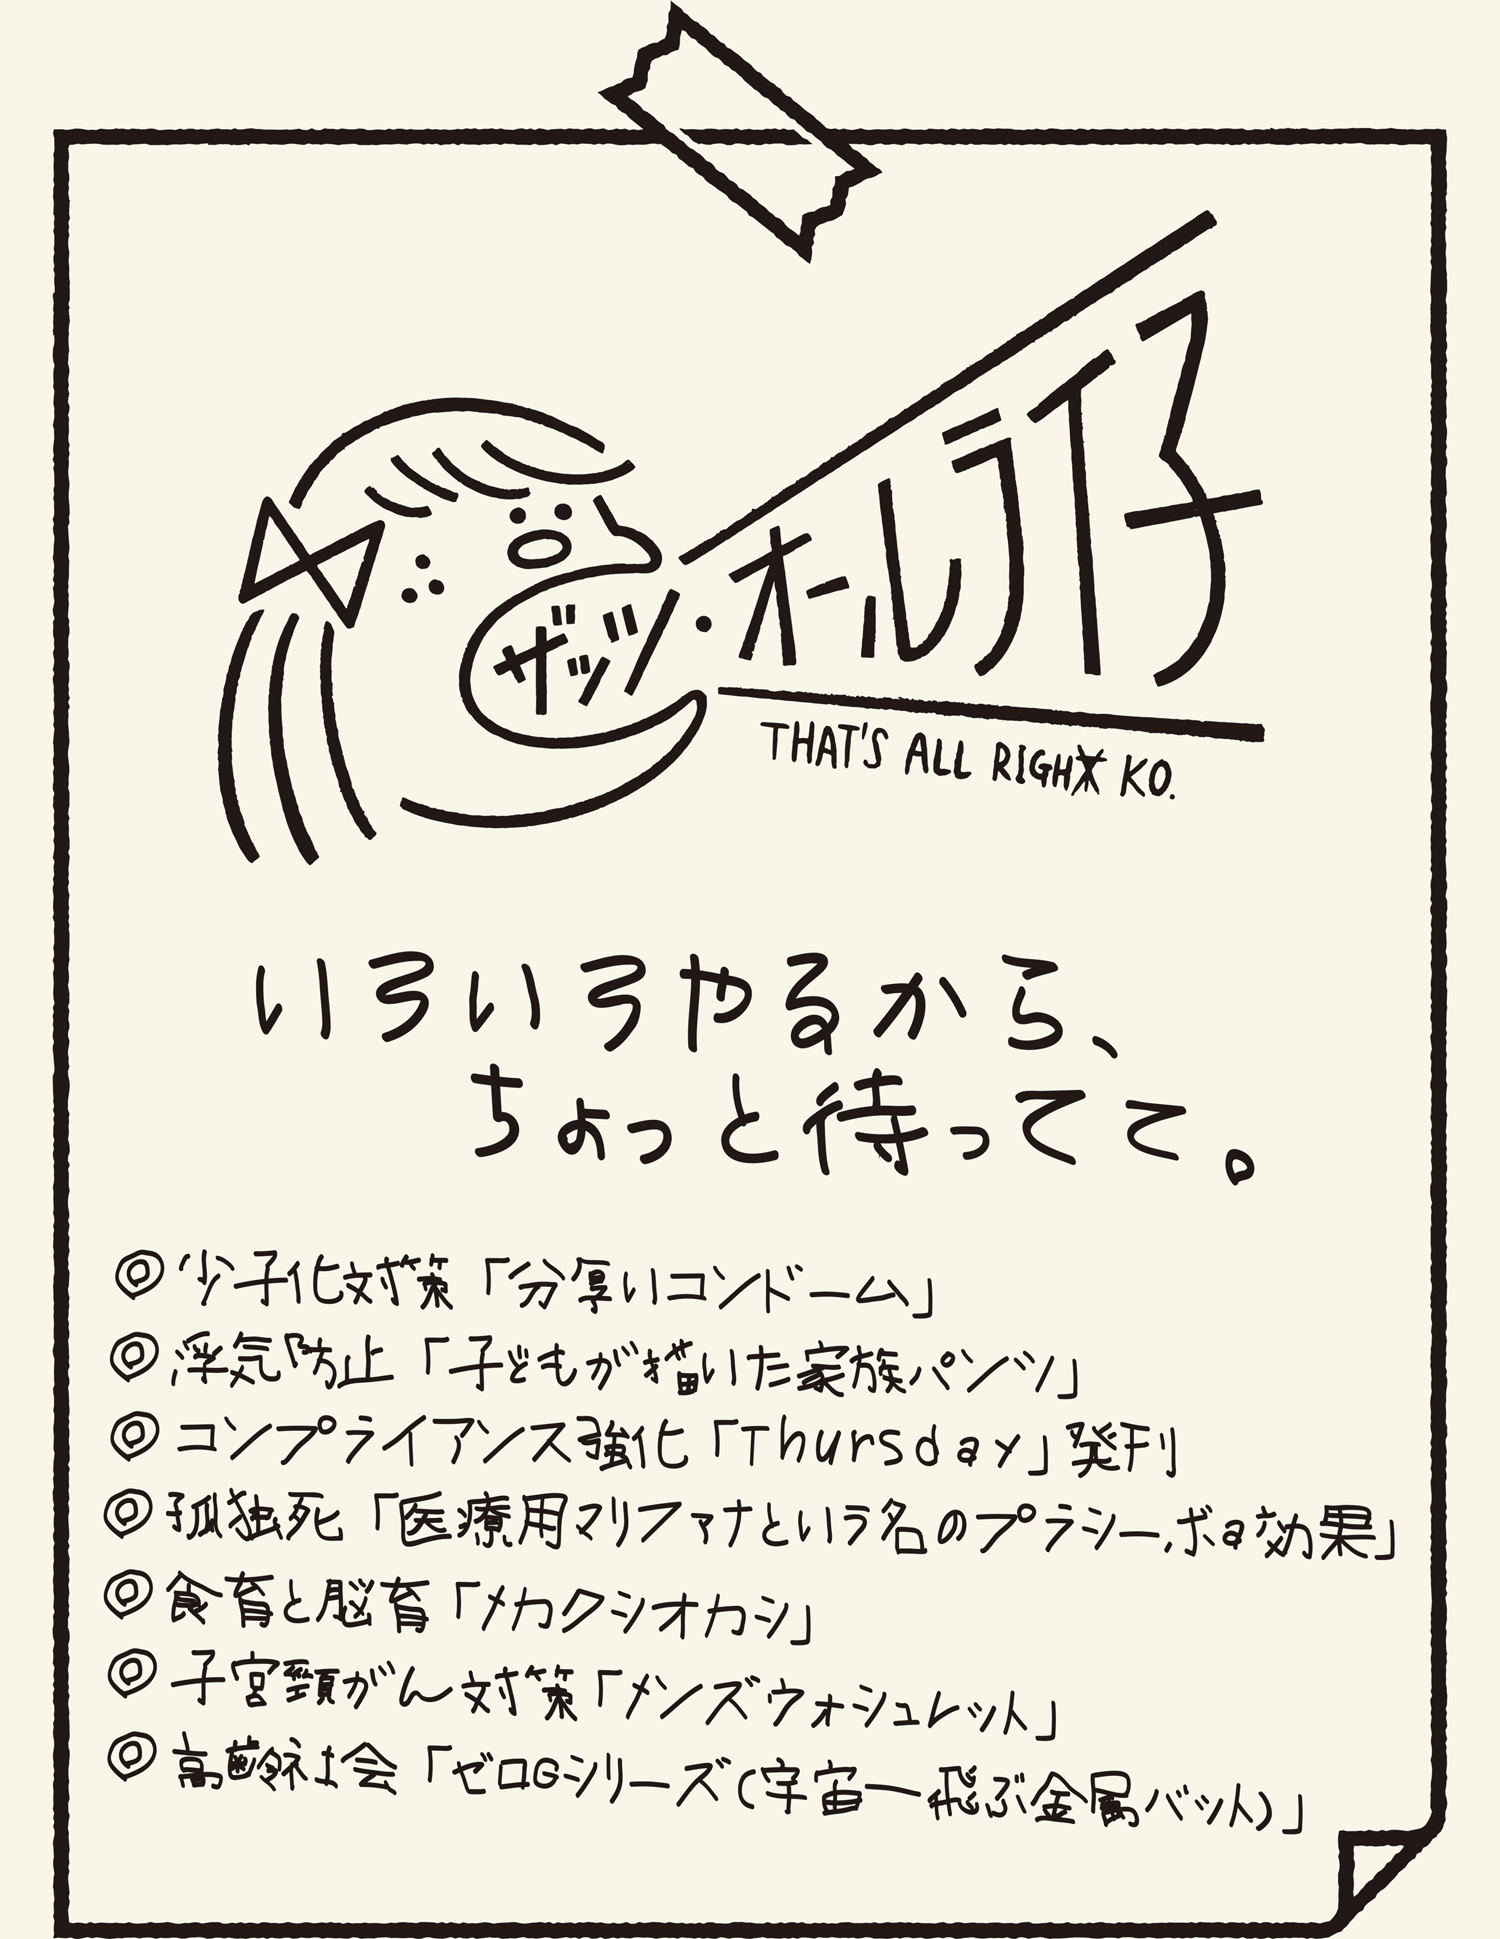 ザッツ・オールライ子
THAT'S ALL RIGHT KO.
いろいろやるから、
ちょっと待ってて。
◎少子化対策「分厚いコンドーム」
◎浮気防止「子どもが描いた家族パンツ」
◎コンプライアンス強化「Thursday」発刊
◎孤独死「医療用マリファナという名のプラシーボa効果」
◎食育と脳育「メカクシオカシ」
◎子宮頸がん対策「メンズウォシュレット」
◎高齢社会「ゼロGシリーズ(宇宙一飛ぶ金属バット)」